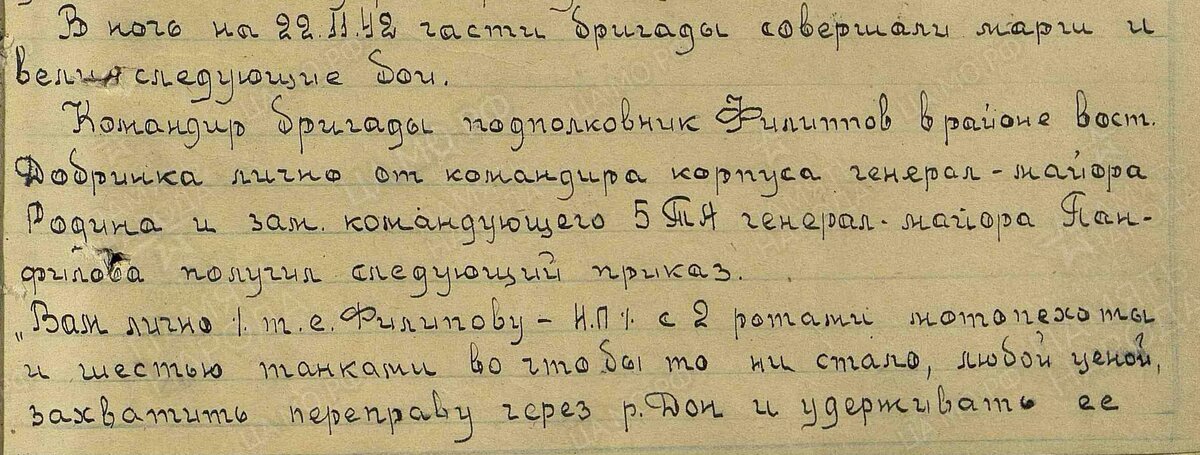 В ночь на 22.11.42 части бригады совершали марш и
вели следующие бои.
Командир бригады подполковник Филиппов в районе вост.
Добринка лично от командира корпуса генерал-майора
Родина и зам. командующего 5 ТА генерал-майора Пан-
филова получил следующий приказ.
„Вам лично /. т.е. Филипову – Н.П /. с 2 ротами мотопехоты
и шестью танками во чтобы то ни стало, любой ценой,
захватить переправу через р. Дон и удерживать ее